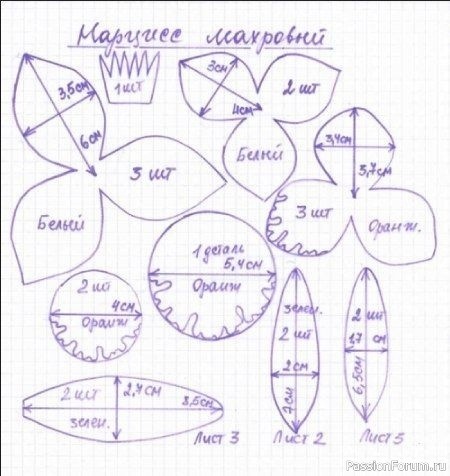 Нарцисс махровый
3,5см
6см
3 шт
Белый
1 шт
3см
4см
2 шт
Белый
3,4см
3,7см
3 шт
Оранж.
2 шт
4см
Оранж
1 деталь
5,4см
Оранж
зелен.
2 шт
2 см
7см
Лист 2
2 шт
1,7 см
6,5см
2 шт
2,4см
8,5см
зелен.
Лист 3
PassionForum.ru